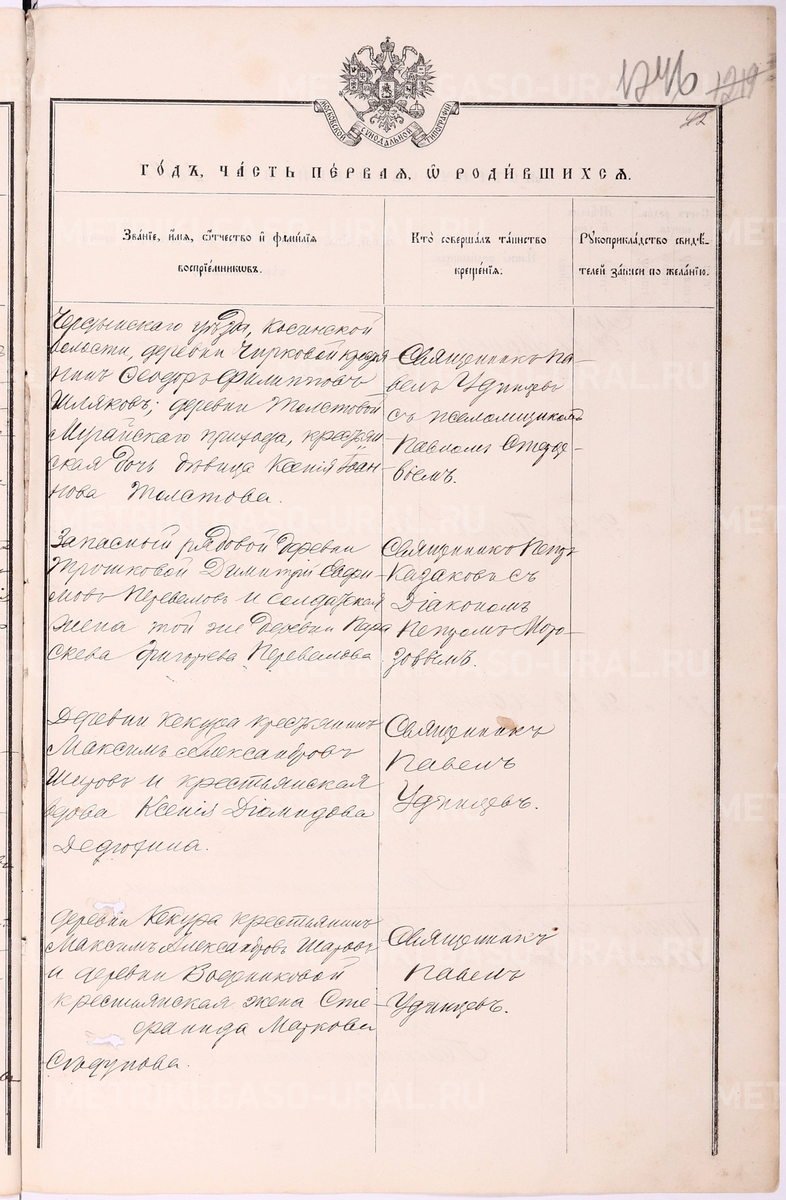 1246 1219
42
МОСКОВСКОЙ СѴНОДАЛЬНОЙ ТИПОГРАФІИ
ГО́ДЪ, ЧА́СТЬ ПЕ́РВАЯ, Ѡ҆ РОДИ́ВШИХСЯ.
Зва́нїе, и҆́мя, ѻ҆́тчество и҆ фами́лїѧ
воспрїе́мниковъ.
Кто̀ соверша́лъ та́инство
креще́нїѧ.
Рꙋкоприкла́дство свидѣ́-
телей за́писи по жела́нїю.
Чердынскаго уѣзда, Косинской
волости, деревни Чирковой крестья
нинъ Ѳеодоръ Филипповъ
Шляковъ; деревни Толстовой
Мугайскаго прихода, крестьян
ская дочь дѣвица Ксенія Іоан-
нова Толстова.
Священникъ Па-
велъ Удинцевъ
съ псаломщикомъ
Павломъ
Запасный рядовой деревни
Трошковой Димитрій Евфи-
мовъ Переваловъ и солдатская
жена той же деревни Пара
скева Григорьева Перевалова
Священникъ Петръ
Казаковъ съ
Діакономъ
Петромъ Моро-
зовымъ.
Деревни Кекура крестьянинъ
Максимъ Александровъ
Шаровъ и крестьянская
вдова Ксенія Діомидова
Дедюхина.
Священникъ
Павелъ
Удинцевъ.
Деревни Кекура крестьянинъ
Максимъ Александровъ Шаровъ
и деревни
крестьянская жена Сте
фанида Маркова
Священникъ
Павелъ
Удинцевъ.
METRIKI.GASO-URAL.RU